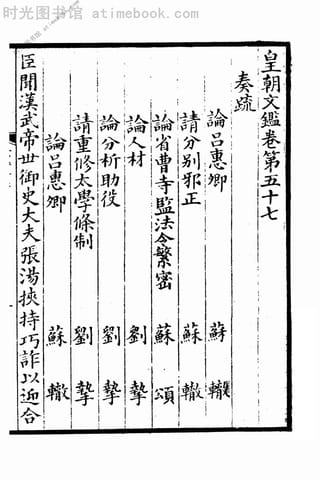 时光图书馆 - atimebook.com
皇朝文鑑卷第五十七
奏疏
論呂惠卿 蘇轍
請分別邪正 蘇轍
論省曹寺監法令繁密 蘇頌
論人材 劉摯
論分析助役 劉摯
請重修太學條制 劉摯
論呂惠卿 蘇轍
臣聞漢武帝世御史大夫張湯挾持巧詐以迎合